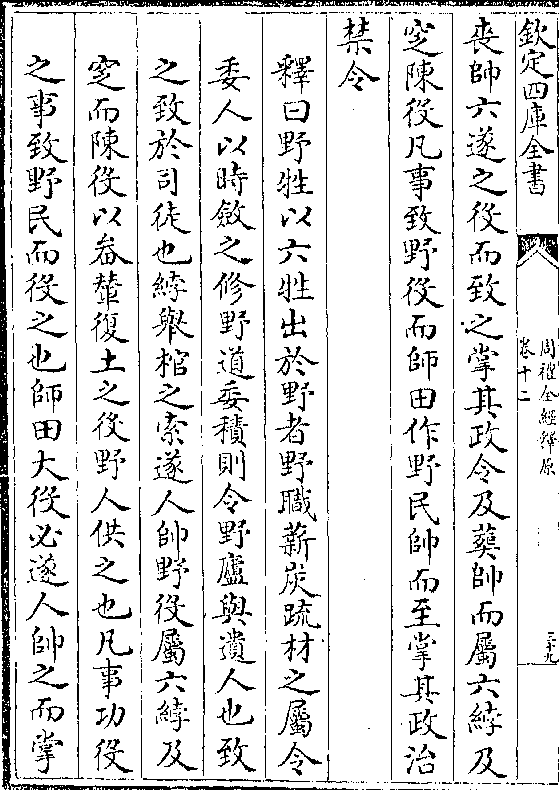 欽定四庫全書
周禮全經釋原
卷十二
三十九
喪帥六遂之役而致之掌其政令及葬帥而屬六綍及
窆陳役凡事致野役而師田作野民帥而至掌其政治
禁令
釋曰野牲以六牲出於野者野職薪炭疏材之屬令
委人以時斂之修野道委積則令野廬與遺人也致
之致於司徒也綍舉棺之索遂人帥野役屬六綍及
窆而陳役以畚輂復土之役野人供之也凡事功役
之事致野民而役之也師田大役必遂人帥之而掌